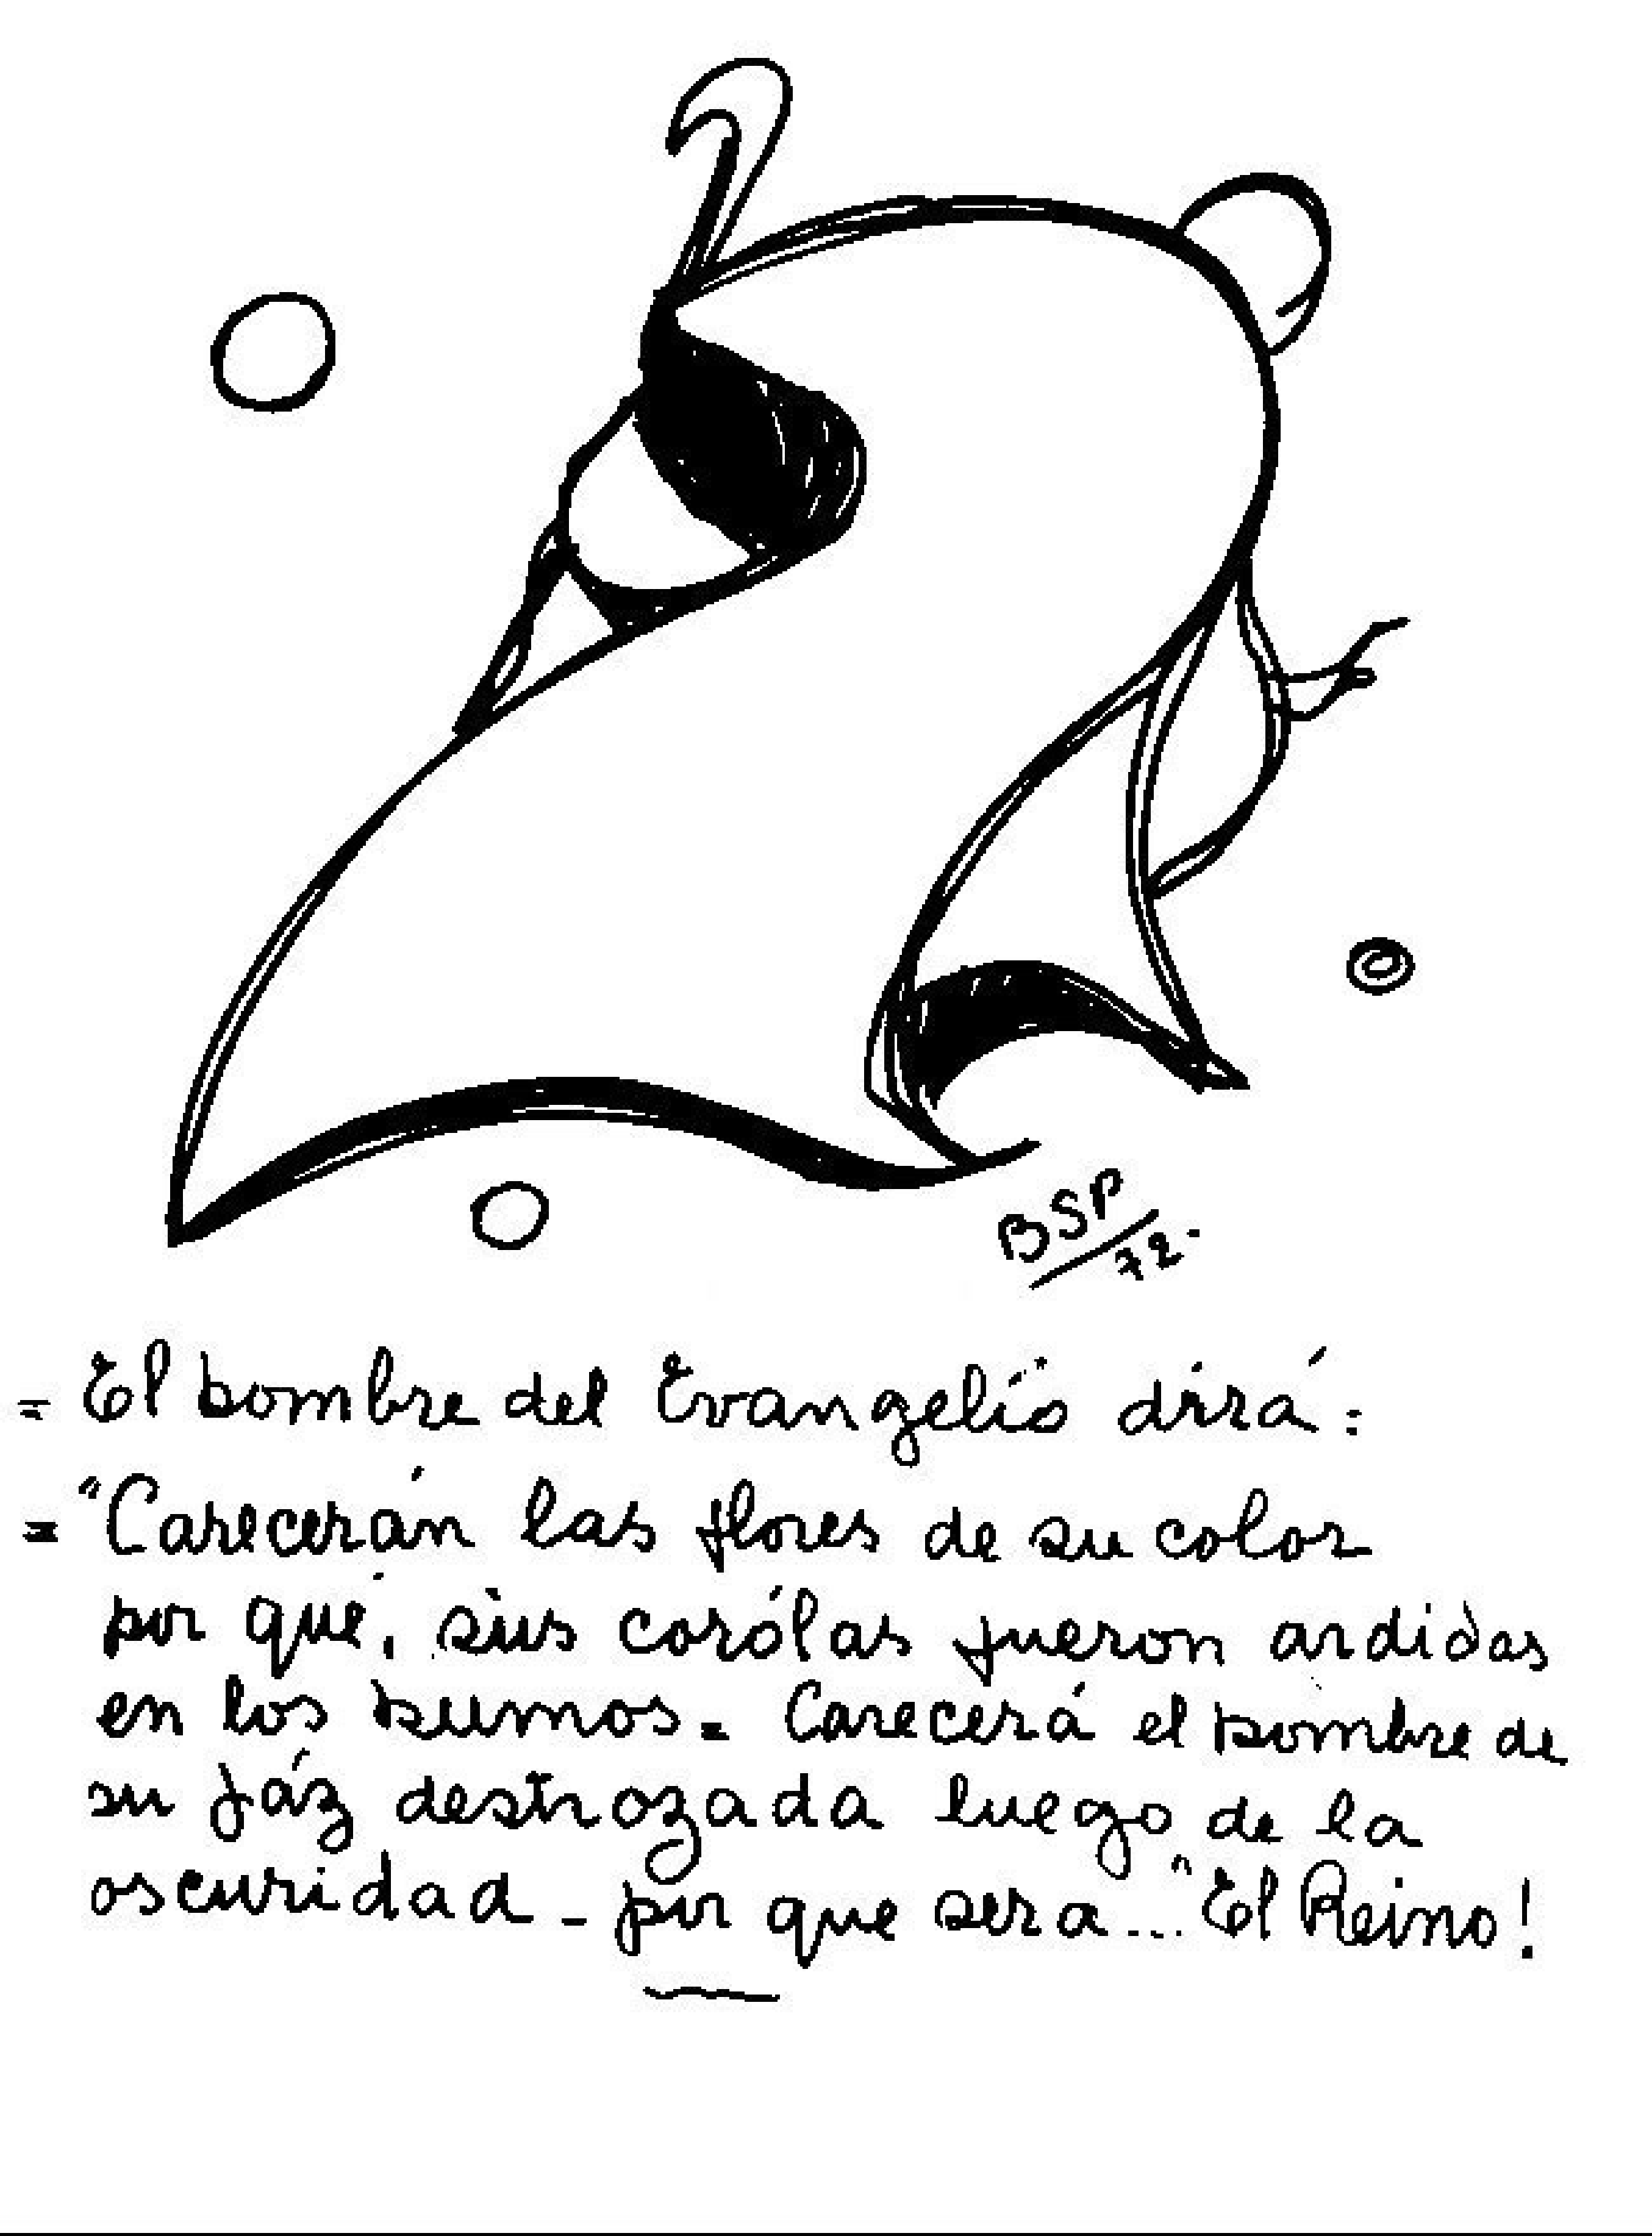 BSP
72.
= El hombre del Evangelio dirá:
= "Carecerán las flores de su color
por qué, sus corólas fueron ardidas
en los humos. = Carecerá el hombre de
su fáz destrozada luego de la
oscuridad - por que sera... "El Reino!